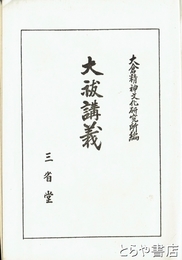 大倉精神文化研究所編
大祓講義
三省堂
古書の
とらや書店